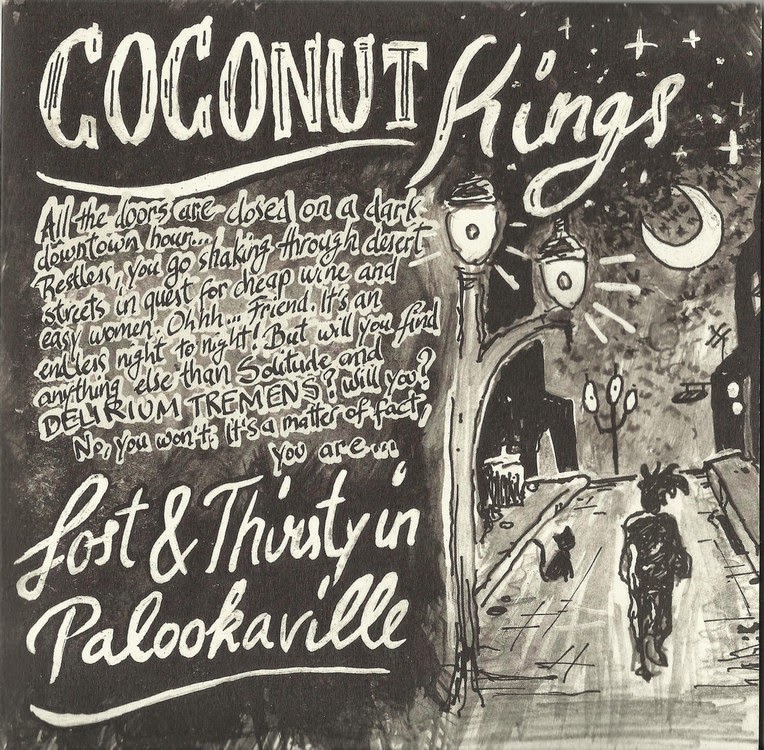 COCONUT Kings
All the doors are closed on a dark
downtown hour...
Restless, you go shaking through desert
streets in quest for cheap wine and
easy women. Ohhh... Friend. It's an
endless night to night! But will you find
anything else than Solitude and
DELIRIUM TREMENS? Will you?
No, you won't. It's a matter of fact,
you are...
Lost & Thirsty in
Palookaville